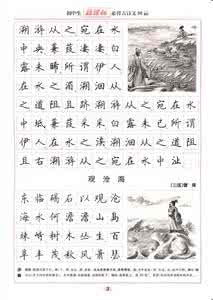 初中生
新课标
必背古诗文
溯游从之宛在水
中央蒹葭萋萋白
露未晞所谓伊人
在水之湄溯洄从
之道阻且跻溯游从之宛在水
中坻蒹葭采采白露未已所谓
伊人在水之涘溯洄从之道阻
且右溯游从之宛在水中沚
观沧海
(三国)曹操
东临碣石以观沧
海水何澹澹山岛
竦峙树木丛生百
草丰茂秋风萧瑟
2